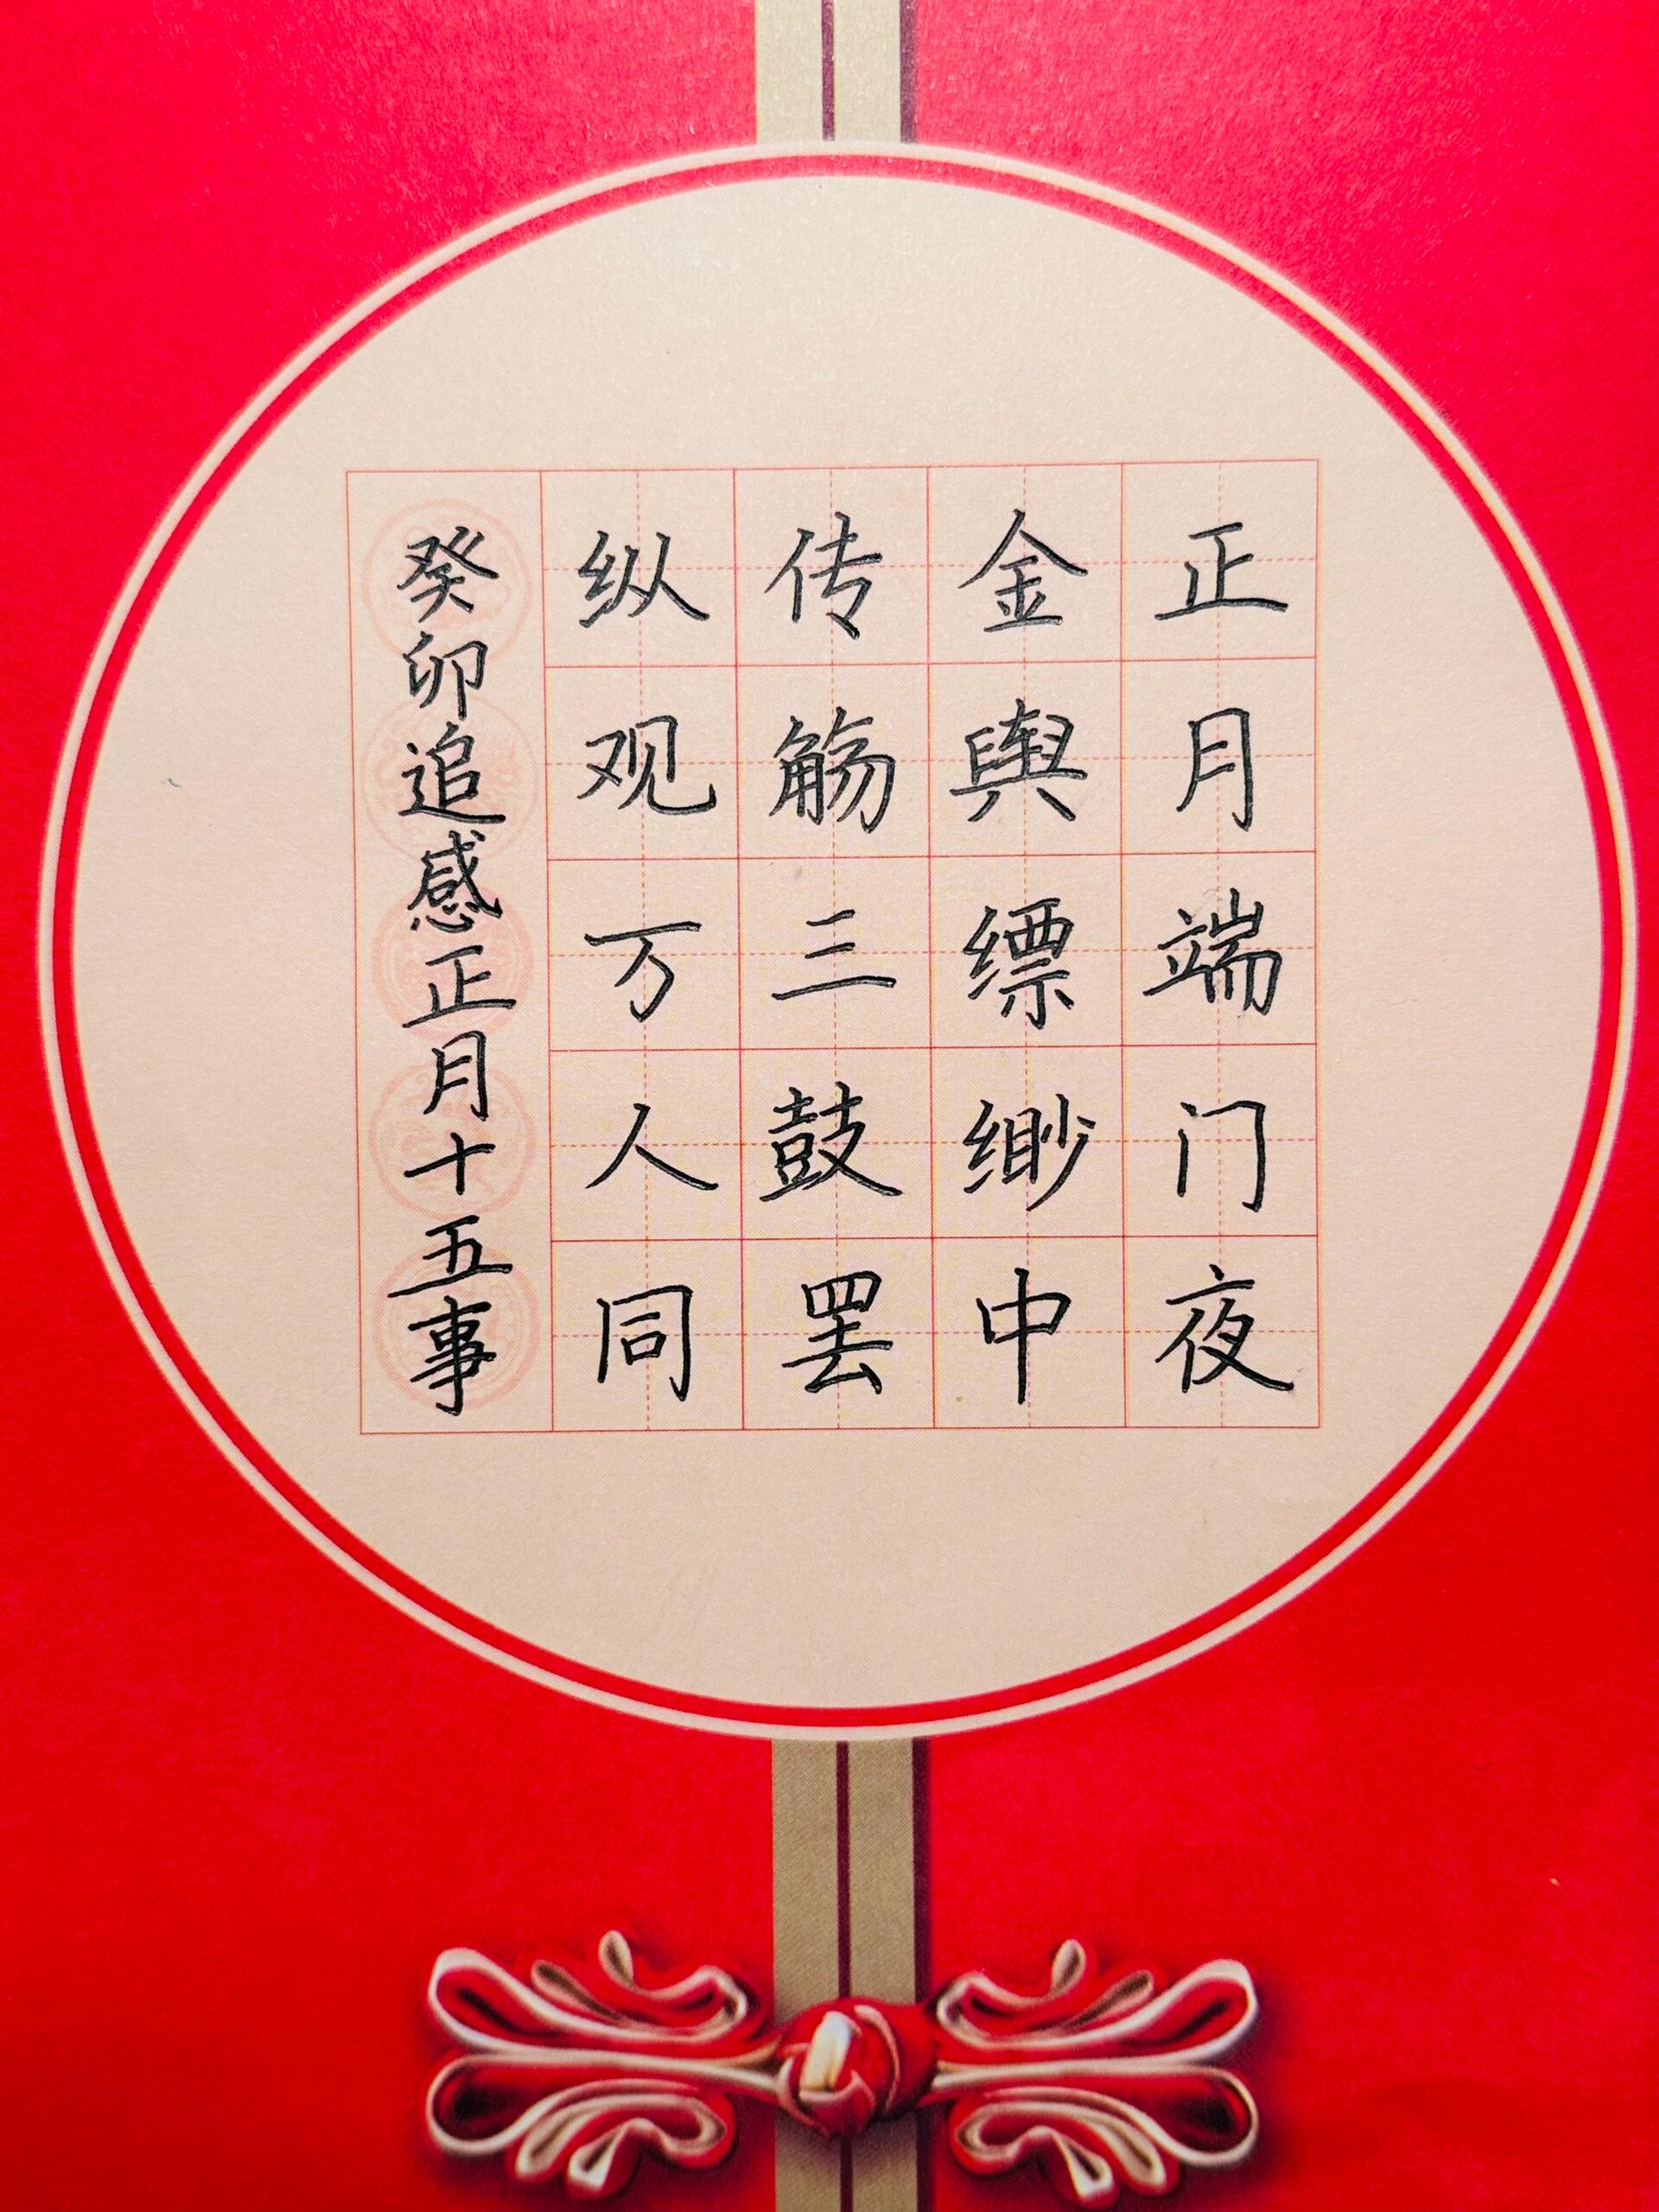 正月端门夜
金舆缥缈中
传觞三鼓罢
纵观万人同
癸卯追感正月十五事